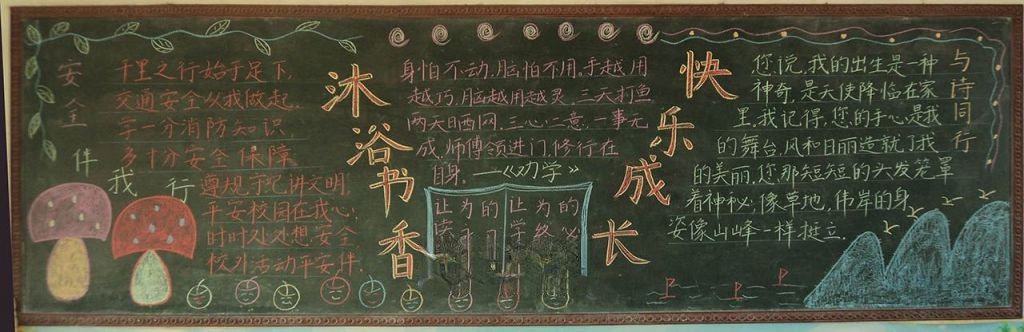 安全伴我行
千里之行始于足下,
交通安全从我做起。
学一分消防知识,
多十分安全保障。
遵规守纪讲文明,
平安校园在我心;
时时处处想安全
校外活动平安伴.
沐浴书香
身怕不动,脑怕不用。手越用
越巧,脑越用越灵。三天打鱼
两天晒网,三心二意,一事无
成。师傅领进门,修行在
自身。——《力学》
快乐成长
与诗同行
您说,我的出生是一种
神奇,是天使降临在家
里。我记得,您的手心是我
的舞台,风和日丽造就了我
的美丽,您那短短的头发笼罩
着神秘,像草地,伟岸的身
姿像山峰一样挺立.